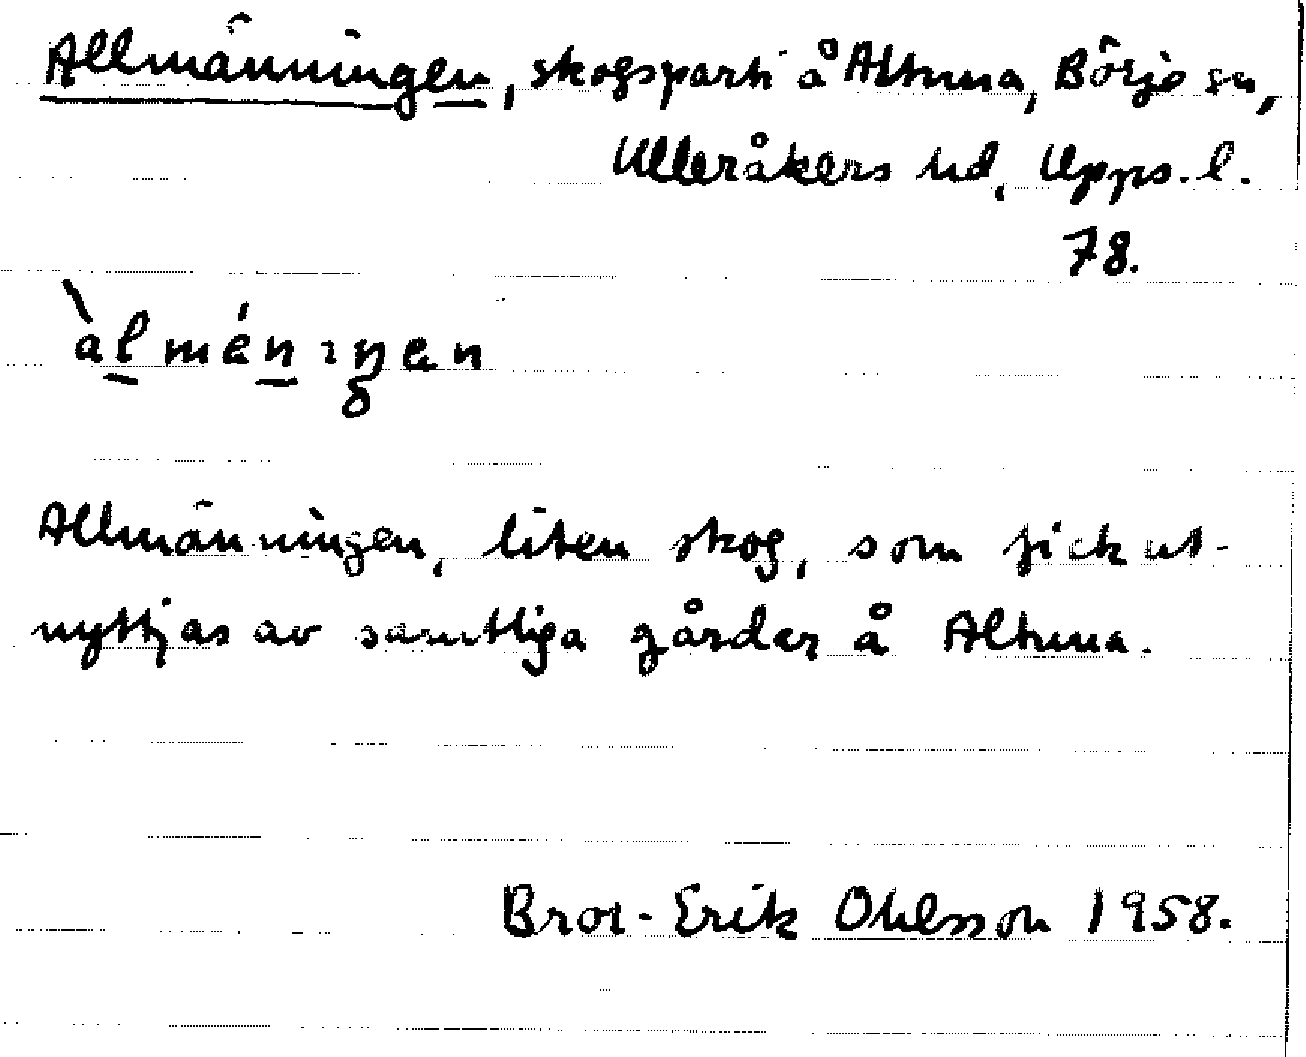 Allmänningen, skogsparti å Altuna, Börje sn,
Ulleråkers hd, Upps. l.
78.
àlménıŋen
Allmänningen, liten skog, som fick ut-
nyttjas av samtliga gårder å Altuna.
Bror-Erik Ohlsson 1958.